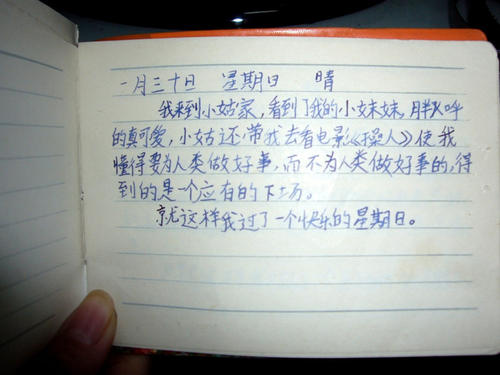 一月三十日 星期日 晴
我来到小姑家,看到了我的小妹妹,胖乎呼
的真可爱,小姑还带我去看电影《操人》使我
懂得要为人类做好事,而不为人类做好事的,得
到的是一个应有的下场。
就这样我过了一个快乐的星期日。